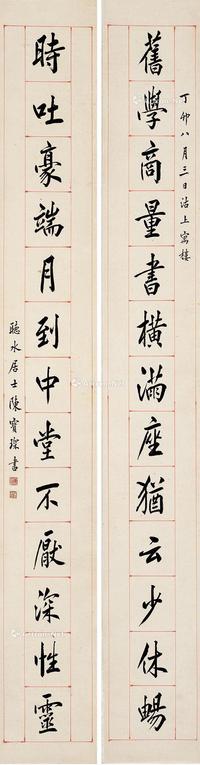 舊學商量書橫滿座猶云少休暢
丁卯八月三日沽上寓樓
時吐豪端月到中堂不厭深性靈
聽水居士陳寶琛書